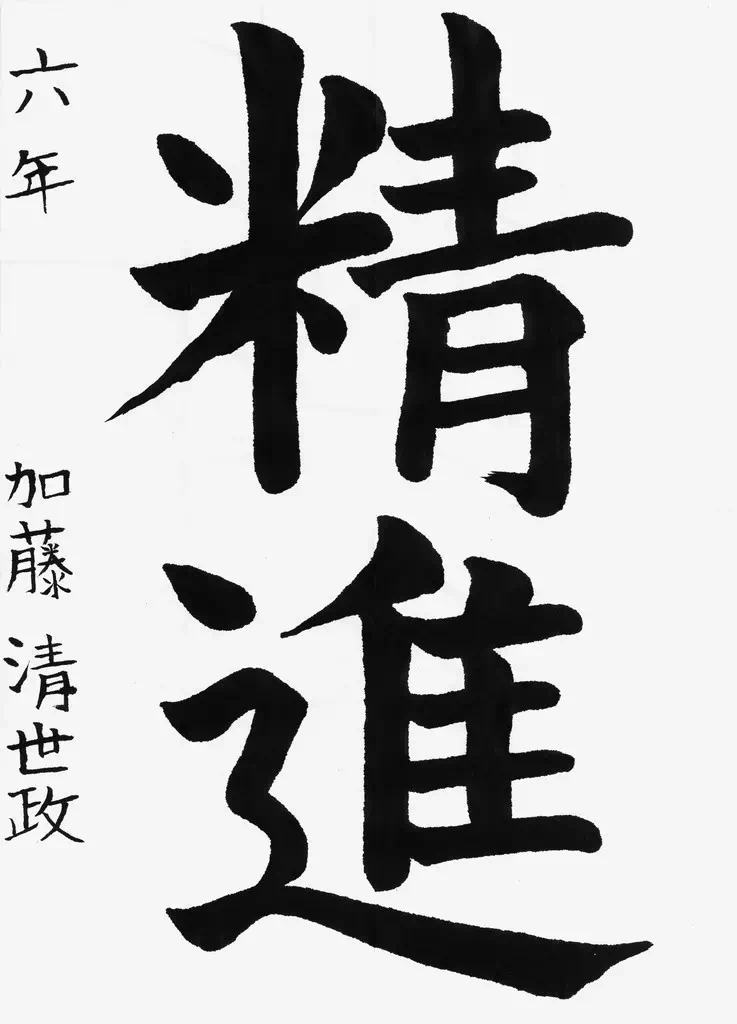 精進
六年 加藤 清世政